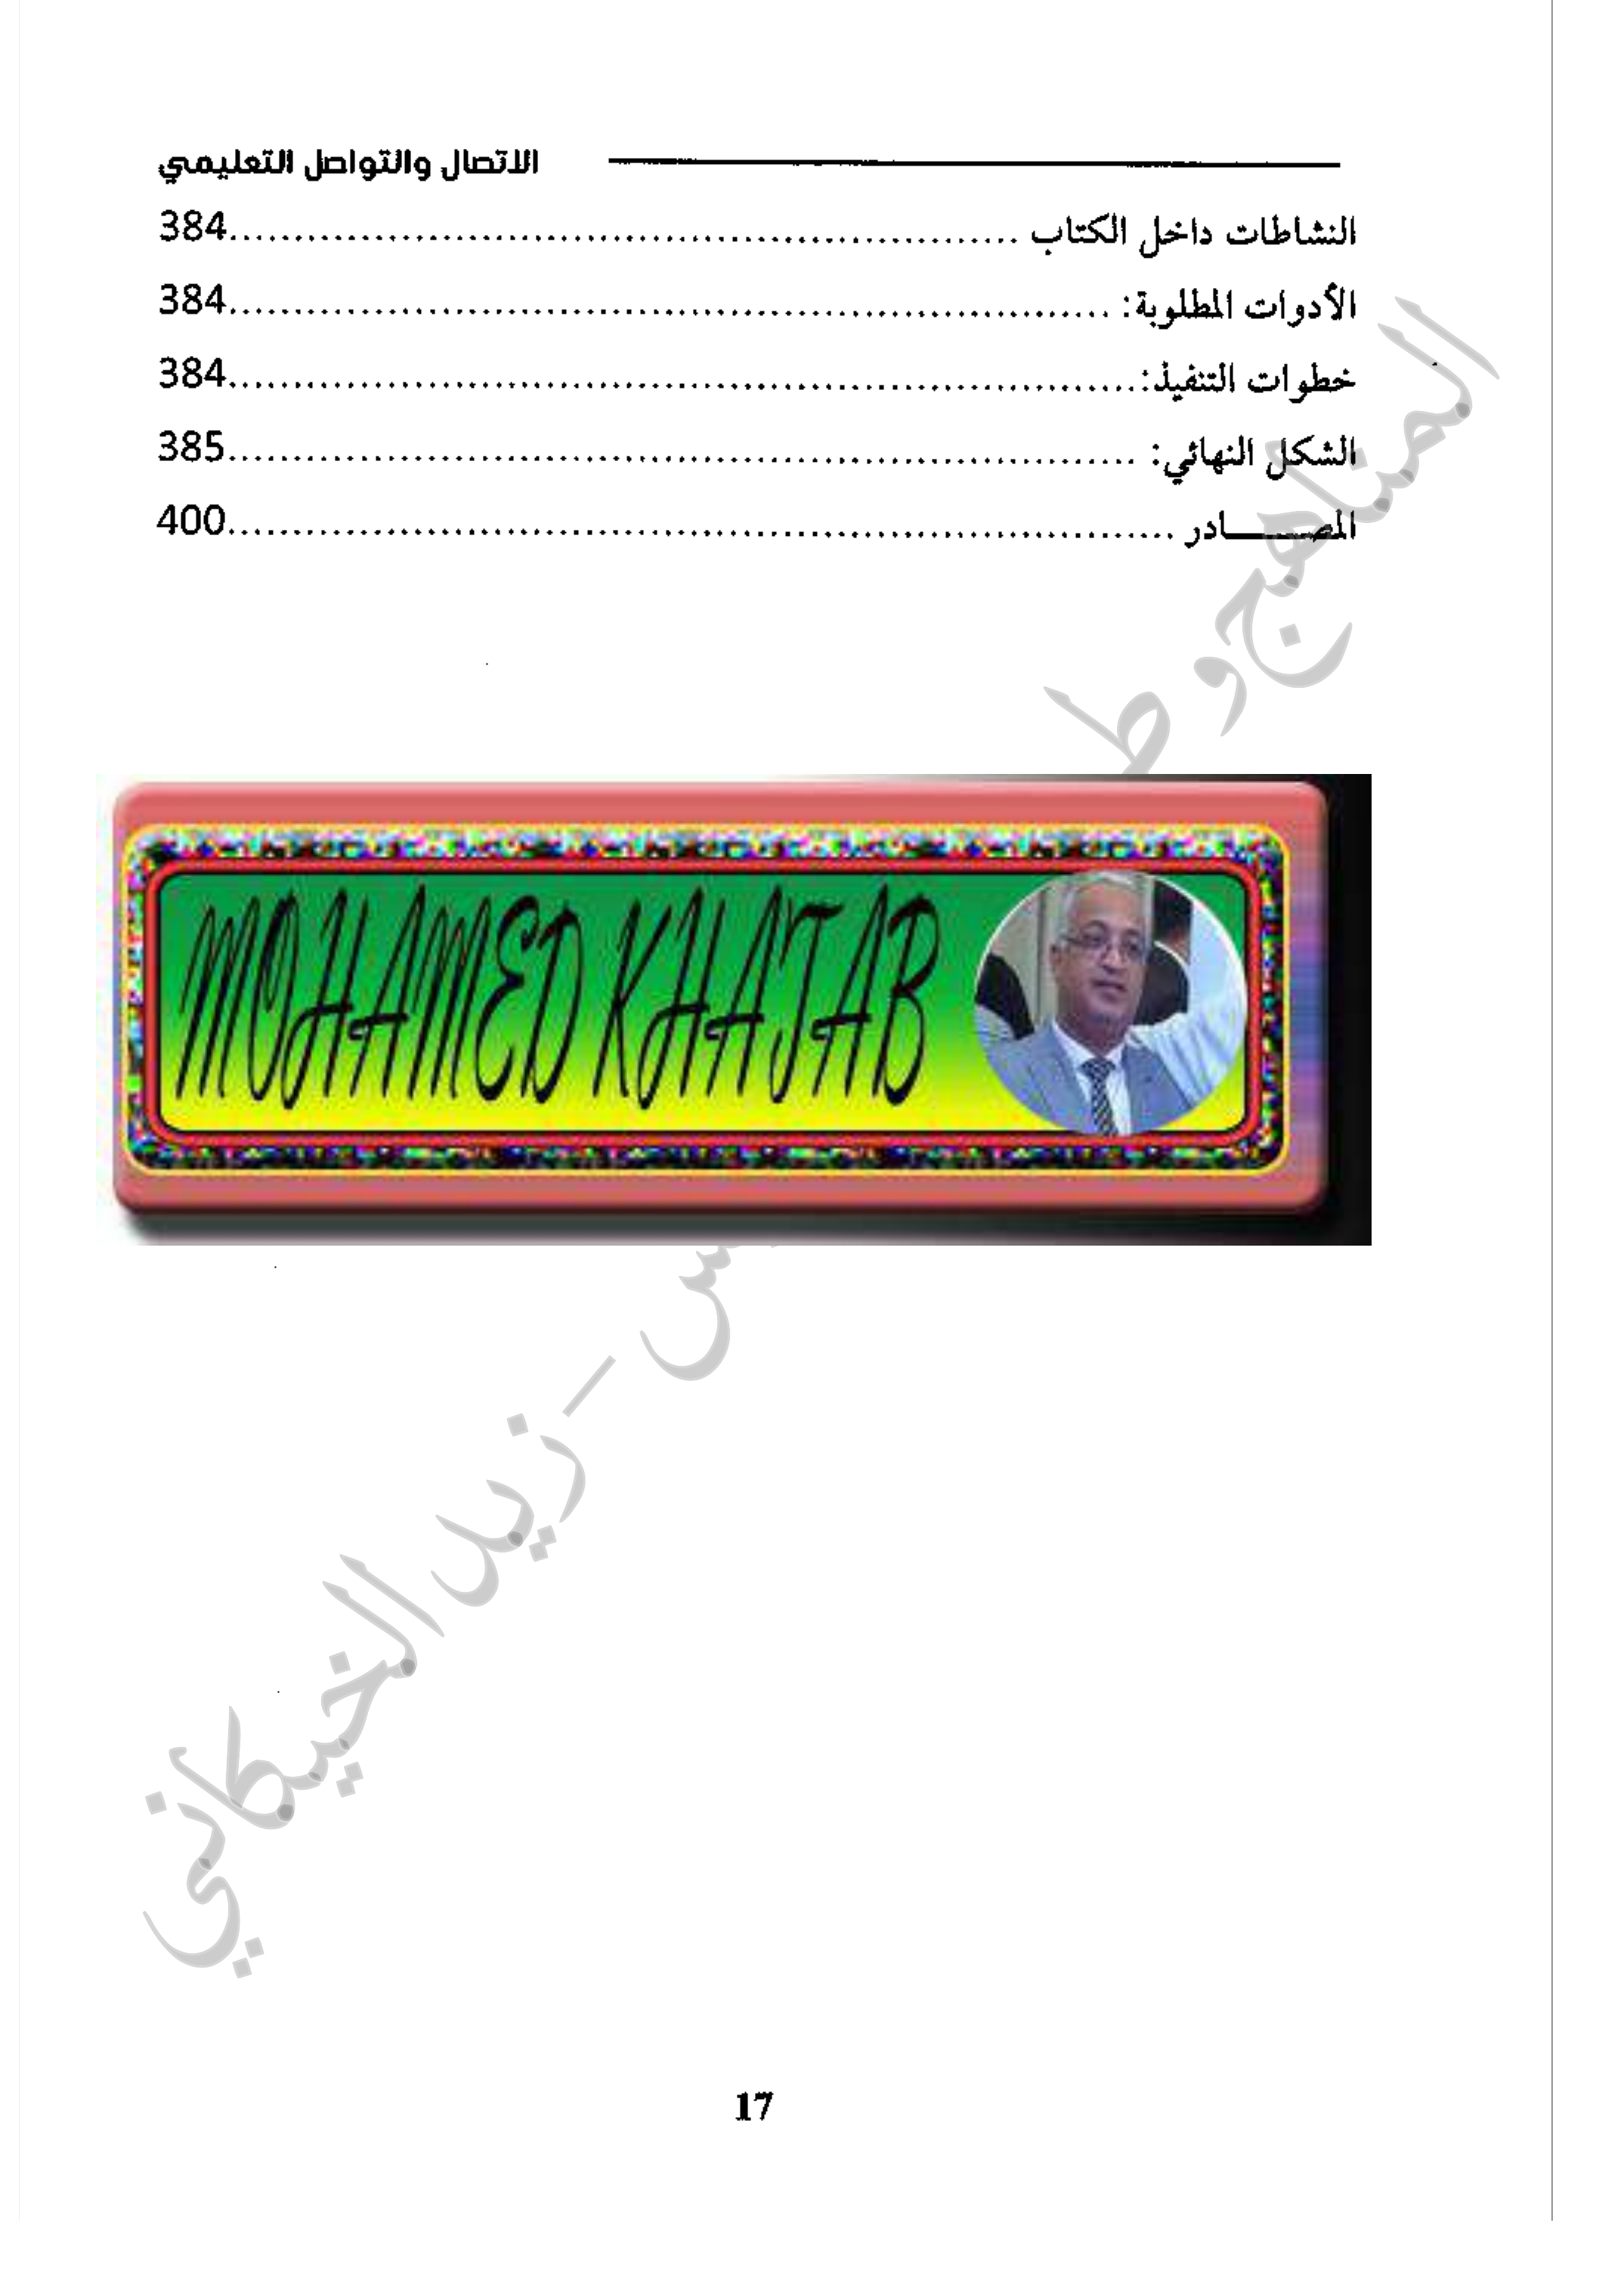 الاتصال والتواصل التعليمي
النشاطات داخل الكتاب ............................................................384
الأدوات المطلوبة: ...................................................................384
خطوات التنفيذ:.....................................................................384
الشكل النهائي: .....................................................................385
المصـــــادر ........................................................................400
المناهج و ط
MOHAMED KHATAB
س - زيد الخيكاني
17